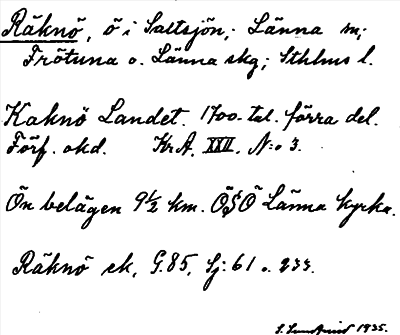 Räknö, ö i Saltsjön; Länna sn;
Frötuna o. Länna skg; Sthlms l.
Kaknö Landet. 1700-tal. förra del.
Förf. okd. Kr A. XXII. N:o 3.
Ön belägen 9½ km. ÖSÖ Länna kyrka.
Räknö ek, G.85, Sj: 61 o. 233.
1935.